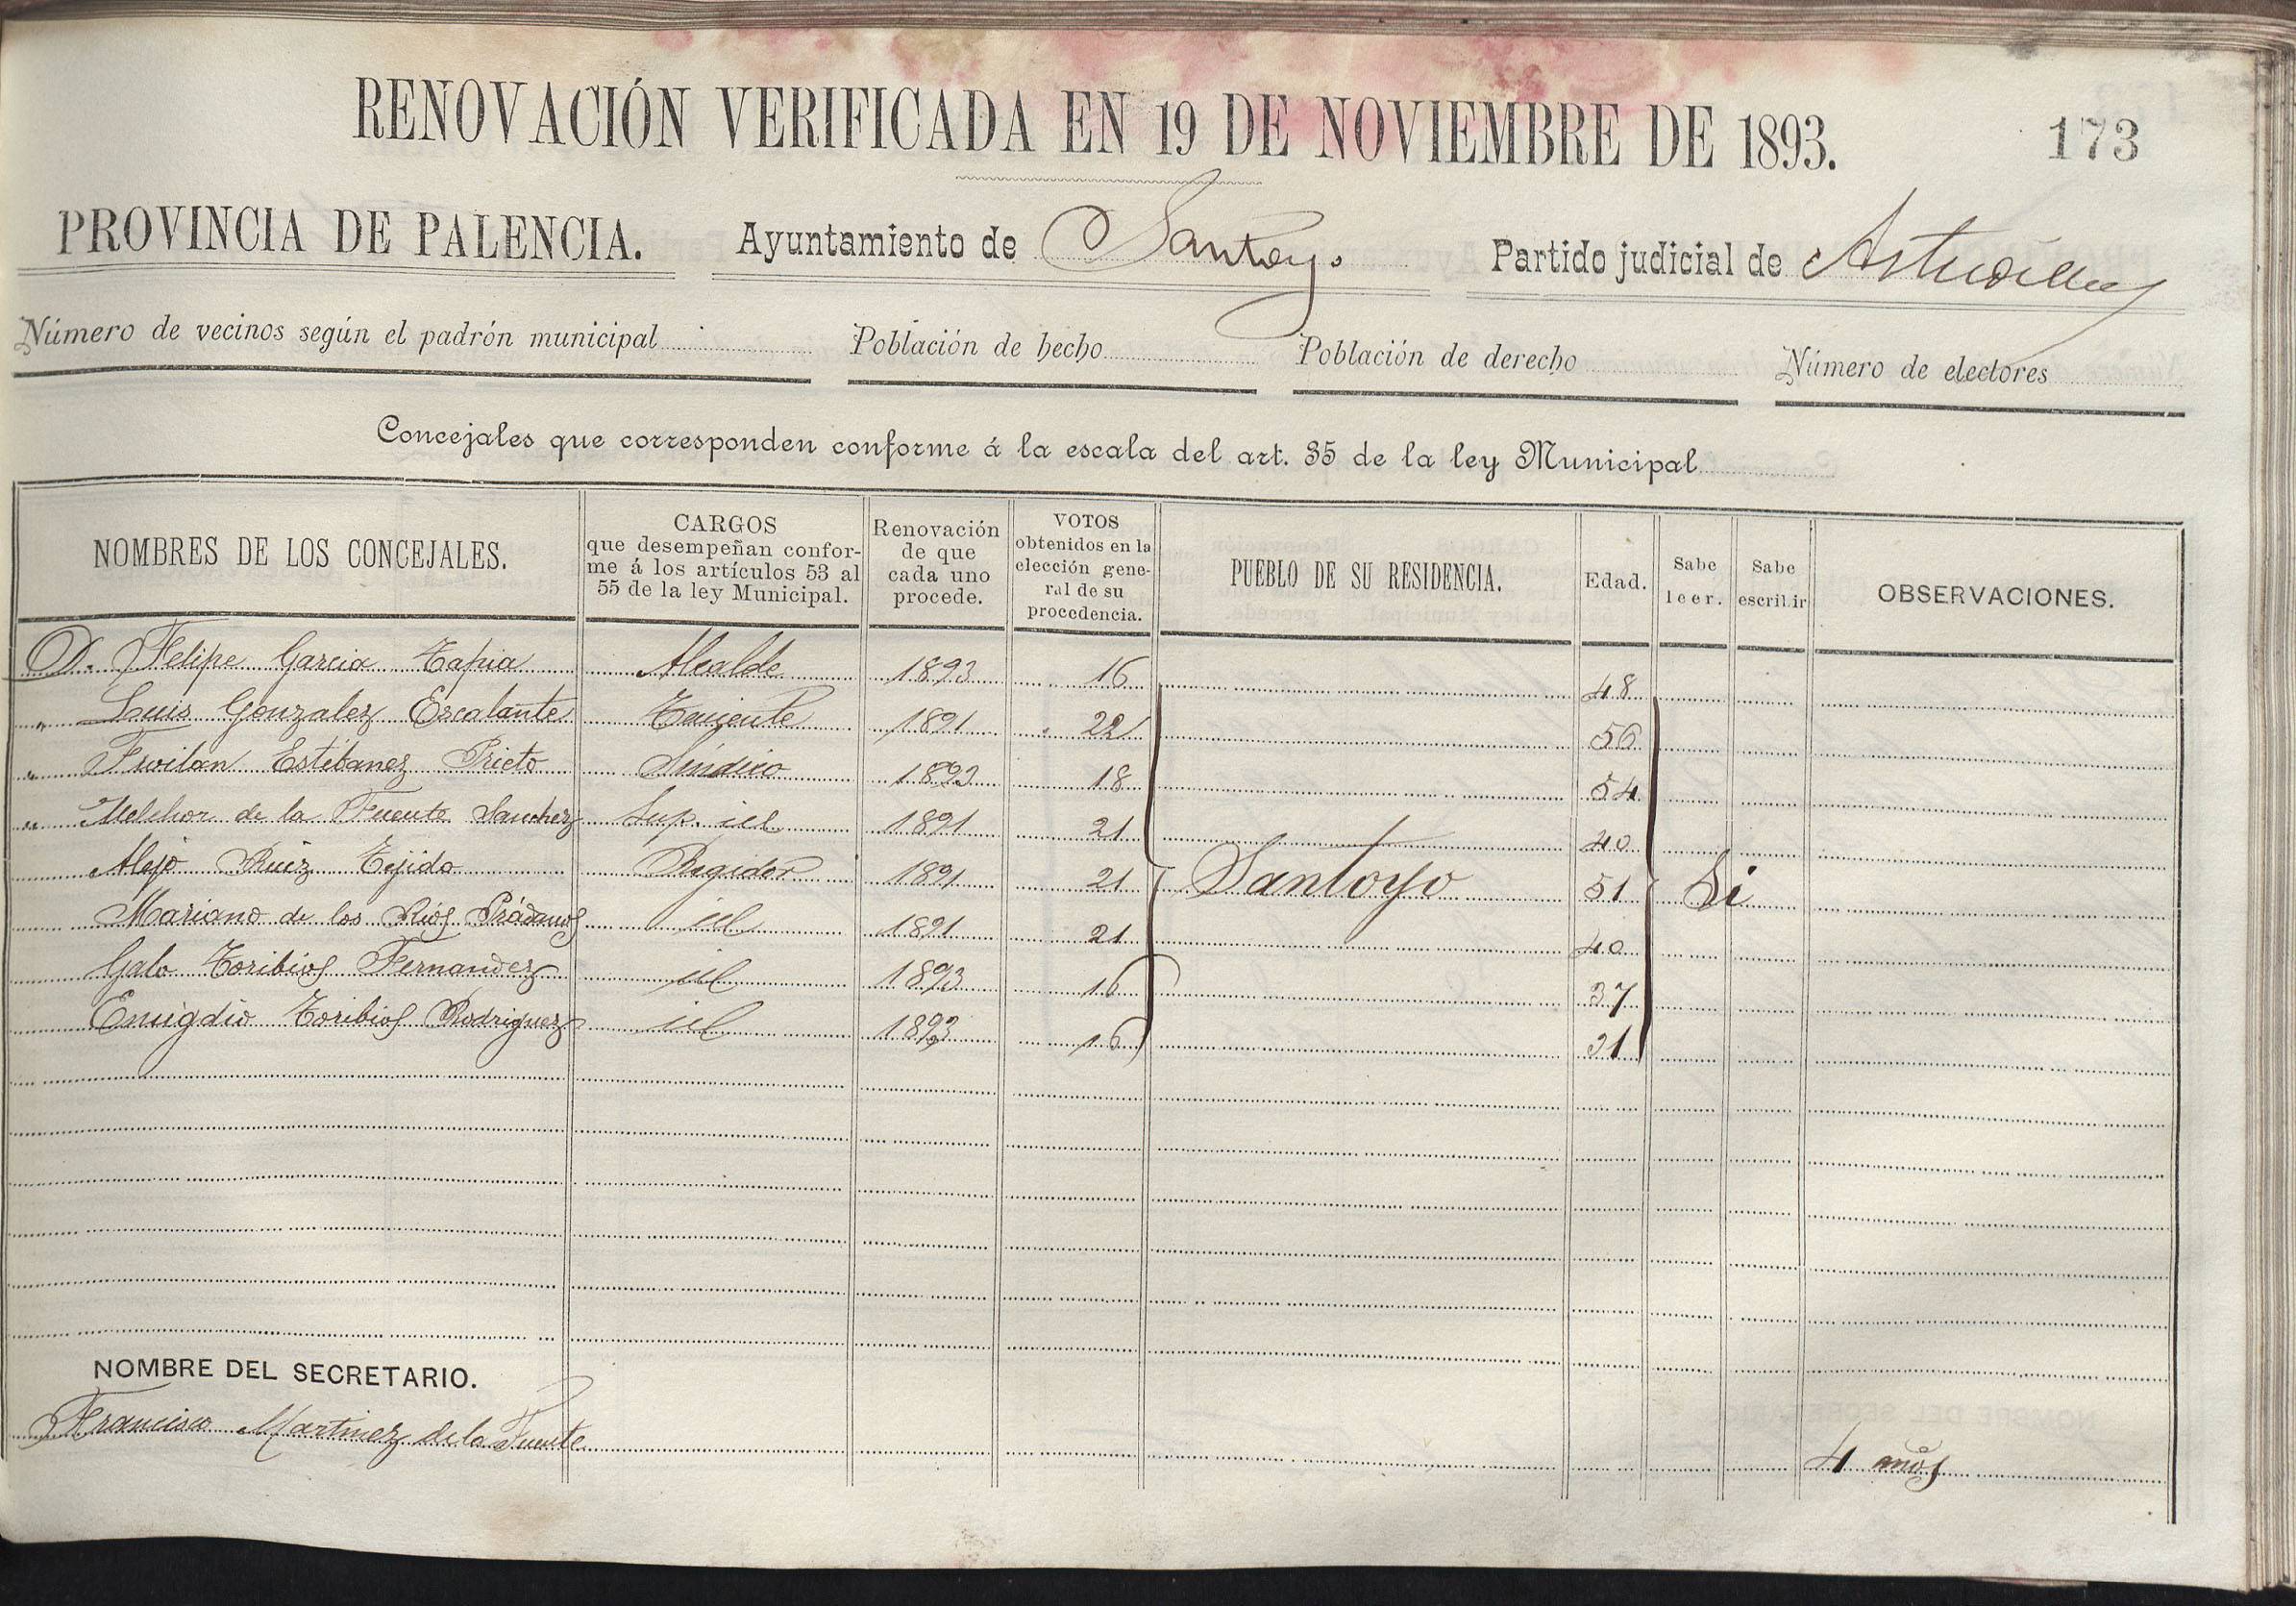 RENOVACIÓN VERIFICADA EN 19 DE NOVIEMBRE DE 1893. 173
PROVINCIA DE PALENCIA. Ayuntamiento de Santoyo Partido judicial de Astudillo
Número de vecinos según el padrón municipal Población de hecho Población de derecho Número de electores
Concejales que corresponden conforme á la escala del art. 35 de la ley Municipal
NOMBRES DE LOS CONCEJALES. CARGOS que desempeñan conforme á los artículos 53 al 55 de la ley Municipal. Renovación de que cada uno procede. VOTOS obtenidos en la elección general de su procedencia. PUEBLO DE SU RESIDENCIA. Edad. Sabe leer. Sabe escribir OBSERVACIONES.
D. Felipe Garcia Tapia Alcalde 1893 16 48
" Luis Gonzalez Escalante Teniente 1891 22 56
" Froilan Estébanez Prieto Síndico 1893 18 54
" Melchor de la Fuente Sanchez Sup. id 1891 21 40
Alejo Ruiz Tejido Regidor 1891 21 Santoyo 51 Si
Mariano de los Ríos Prádanos id 1891 21 40
Galo Toribios Fernandez id 1893 16 37
Emigdio Toribios Rodriguez id 1893 16 31
NOMBRE DEL SECRETARIO.
Francisco Martinez de la Fuente 4 años